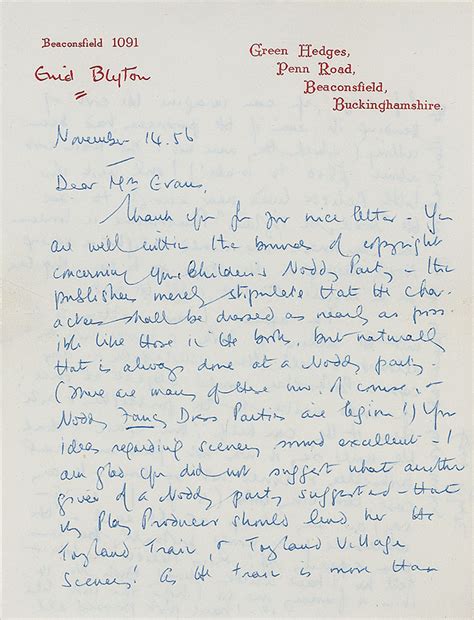 Beaconsfield 1091
Enid Blyton
Green Hedges,
Penn Road,
Beaconsfield,
Buckinghamshire.
November 14.56
Dear Mrs Evans,
Thank you for your nice letter - You
are well within the bounds of copyright
concerning your Children's Noddy Party - the
publishers merely stipulate that the char-
acters shall be dressed as nearly as poss-
ible like those in the books, but naturally
that is always done at a Noddy party.
(There are many of these now of course, &
Noddy Fancy Dress Parties are legion!) Your
ideas regarding scenery sound excellent - I
am glad you did not suggest what another
giver of a Noddy party suggested - that
my Play Producer should lend her the
Toyland Train, & Toyland Village
Scenery! As the train is more than